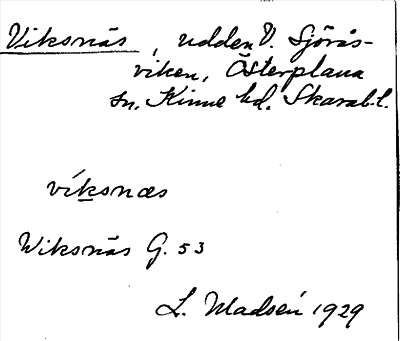 Viksnäs, udden V. Sjörås-
viken, Österplana
sn. Kinne hd. Skarab.l.
víksnæs
Wiksnäs G. 53
L. Madsén 1929